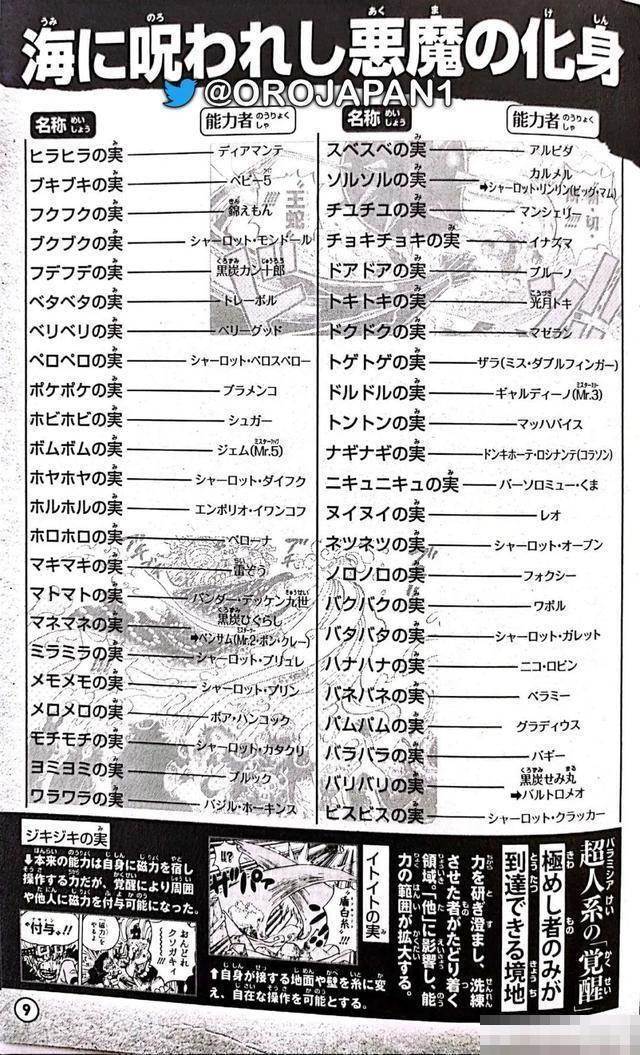 海に呪われし悪魔の化身
@OROJAPAN1
名称 能力者
スベスベの実 アルビダ
ソルソルの実 カルメル
➡シャーロット・リンリン(ビッグ・マム)
チユチユの実 マンシェリー
チョキチョキの実 イナズマ
ドアドアの実 ブルーノ
トキトキの実 光月トキ
ドクドクの実 マゼラン
トゲトゲの実 ザラ(ミス・ダブルフィンガー)
ドルドルの実 ギャルディーノ(Mr.3)
トントンの実 マッハバイス
ナギナギの実 ドンキホーテ・ロシナンテ(コラソン)
ニキュニキュの実 バーソロミュー・くま
ヌイヌイの実 レオ
ネツネツの実 シャーロット・オーブン
ノロノロの実 フォクシー
バクバクの実 ワポル
バタバタの実 シャーロット・ガレット
ハナハナの実 ニコ・ロビン
バネバネの実 ベラミー
パムパムの実 グラディウス
バラバラの実 バギー
バリバリの実 黒炭せみ丸
➡バルトロメオ
ビスビスの実 シャーロット・クラッカー
名称 能力者
ヒラヒラの実 ディアマンテ
ブキブキの実 ベビー5
フクフクの実 錦えもん
ブクブクの実 シャーロット・モンドール
フデフデの実 黒炭カン十郎
ベタベタの実 トレーボル
ベリーベリーの実 ベリーグッド
ペロペロの実 シャーロット・ペロスペロー
ポケポケの実 ブラメンコ
ホビホビの実 シュガー
ボムボムの実 ジェム(Mr.5)
ホヤホヤの実 シャーロット・ダイフク
ホルホルの実 エンポリオ・イワンコフ
ホロホロの実 ペローナ
マキマキの実 雷ぞう
マトマトの実 バンダー・デッケン九世
マネマネの実 黒炭ひぐらし
➡ベンサム(Mr.2・ボン・クレー)
ミラミラの実 シャーロット・ブリュレ
メモメモの実 シャーロット・プリン
メロメロの実 ボア・ハンコック
モチモチの実 シャーロット・カタクリ
ヨミヨミの実 ブルック
ワラワラの実 バジル・ホーキンス
超人系の「覚醒」
極めし者のみが
到達できる境地
力を研ぎ澄まし、洗練
させた者がたどり着く
領域。「他」に影響し、能
力の範囲が拡大する。
イトイトの実
!!?
盾白糸!!
⬆自身が接する地面や壁を糸に変
え、自在な操作を可能とする。
ジキジキの実
⬇本来の能力は自身に磁力を宿し
操作する力だが、覚醒により周囲
や他人に磁力を付与可能になった。
おんどれ
クソガキィ
“付与”!!
9